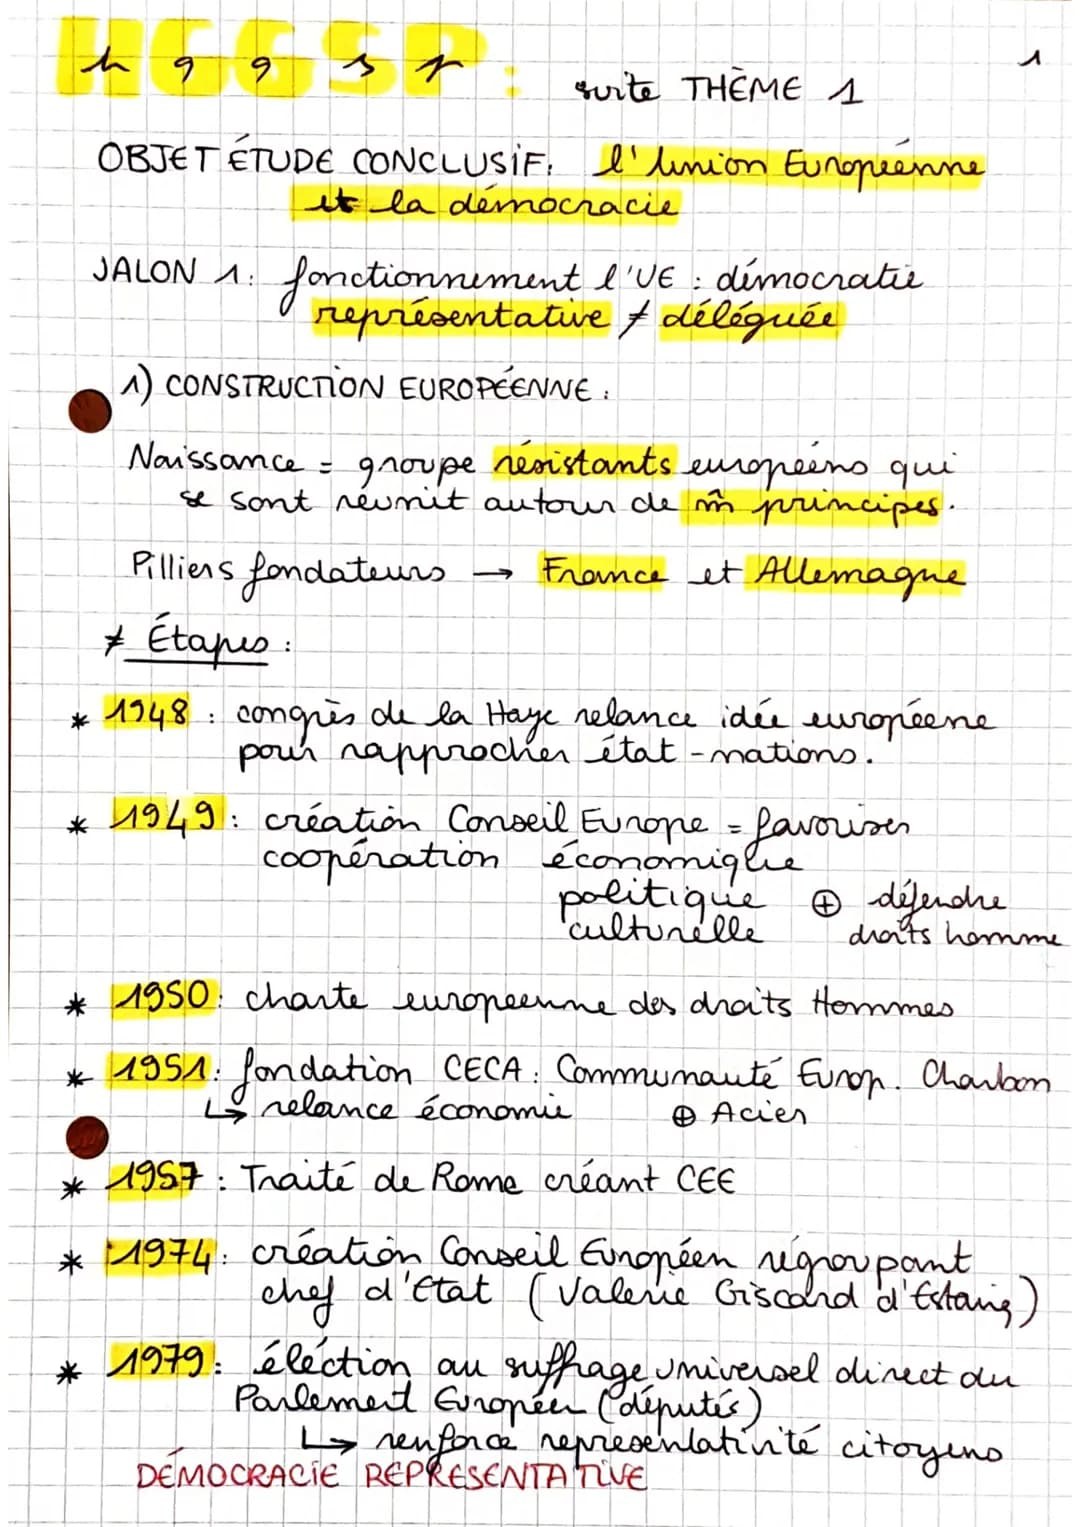 hggsp : suite THÈME 1
1
OBJET ÉTUDE CONCLUSIF : l'Union Européenne
et la démocracie
JALON 1 : fonctionnement l'UE : démocratie
représentative ≠ déléguée
1) CONSTRUCTION EUROPÉENNE :
Naissance = groupe résistants européens qui
se sont réunit autour de m̂ principes.
Pilliers fondateurs → France et Allemagne
≠ Étapes :
* 1948 : congrès de la Haye relance idée européene
pour rapprocher état-nations.
* 1949 : création Conseil Europe = favoriser
coopération économique
politique ⊕ défendre
culturelle droits homme
* 1950 : charte européenne des droits Hommes
* 1951 : fondation CECA : Communauté Europ. Charbon
↳ relance économie ⊕ Acier
* 1957 : Traité de Rome créant CEE
* 1974 : création Conseil Européen régroupant
chef d'Etat (Valerie Giscard d'Estaing)
* 1979 : éléction au suffrage universel direct du
Parlement Européen (députés)
↳ renforce représentativité citoyens
DÉMOCRACIE REPRÉSENTATIVE